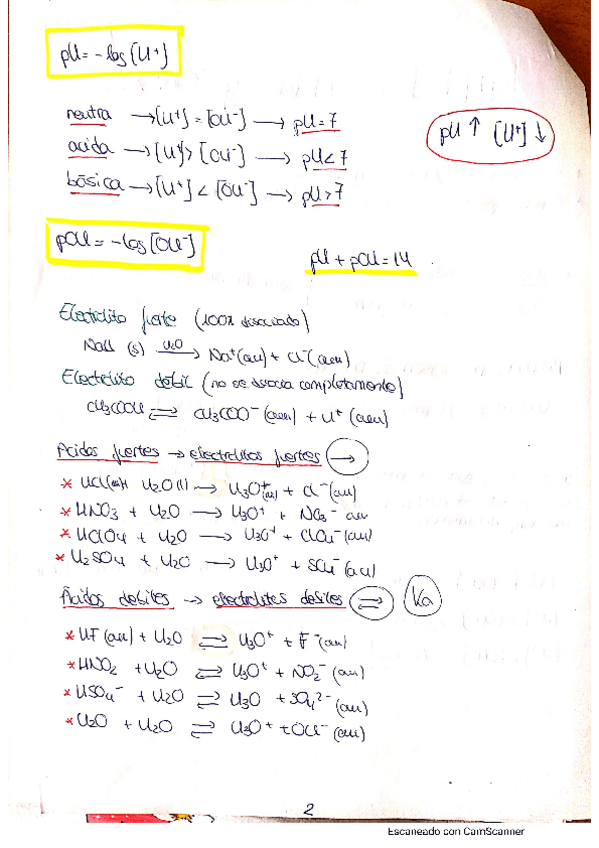 pH = -log [H⁺]
neutra → [H⁺] = [OH⁻] → pH = 7
pH ↑ [H⁺] ↓
acida → [H⁺] > [OH⁻] → pH < 7
básica → [H⁺] < [OH⁻] → pH > 7
pOH = -log [OH⁻]
pH + pOH = 14
Electrolito fuerte (100% disociado)
NaCl (s) H₂O → Na⁺(aq) + Cl⁻(aq)
Electrolito débil (no se disocia completamente)
CH₃COOH ⇌ CH₃COO⁻ (aq) + H⁺ (aq)
Ácidos fuertes → electrolitos fuertes →
* HCl(aq) + H₂O(l) → H₃O⁺(aq) + Cl⁻(aq)
* HNO₃ + H₂O → H₃O⁺ + NO₃⁻ aq
* HClO₄ + H₂O → H₃O⁺ + ClO₄⁻(aq)
* H₂SO₄ + H₂O → H₃O⁺ + SO₄⁻(aq)
Ácidos debiles → electrolitos debiles ⇌ Ka
* HF(aq) + H₂O ⇌ H₃O⁺ + F⁻(aq)
* HNO₂ + H₂O ⇌ H₃O⁺ + NO₂⁻ (aq)
* HSO₄⁻ + H₂O ⇌ H₃O + SO₄²⁻ (aq)
* H₂O + H₂O ⇌ H₃O⁺ + OH⁻ (aq)
2
Escaneado con CamScanner